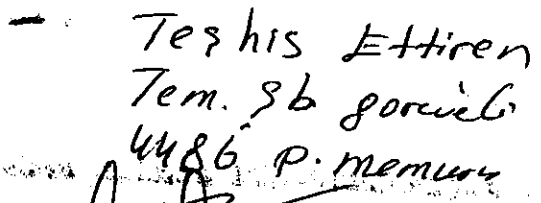 - Teşhis Ettiren
Tem. Şb görevli
4486 P. memuru